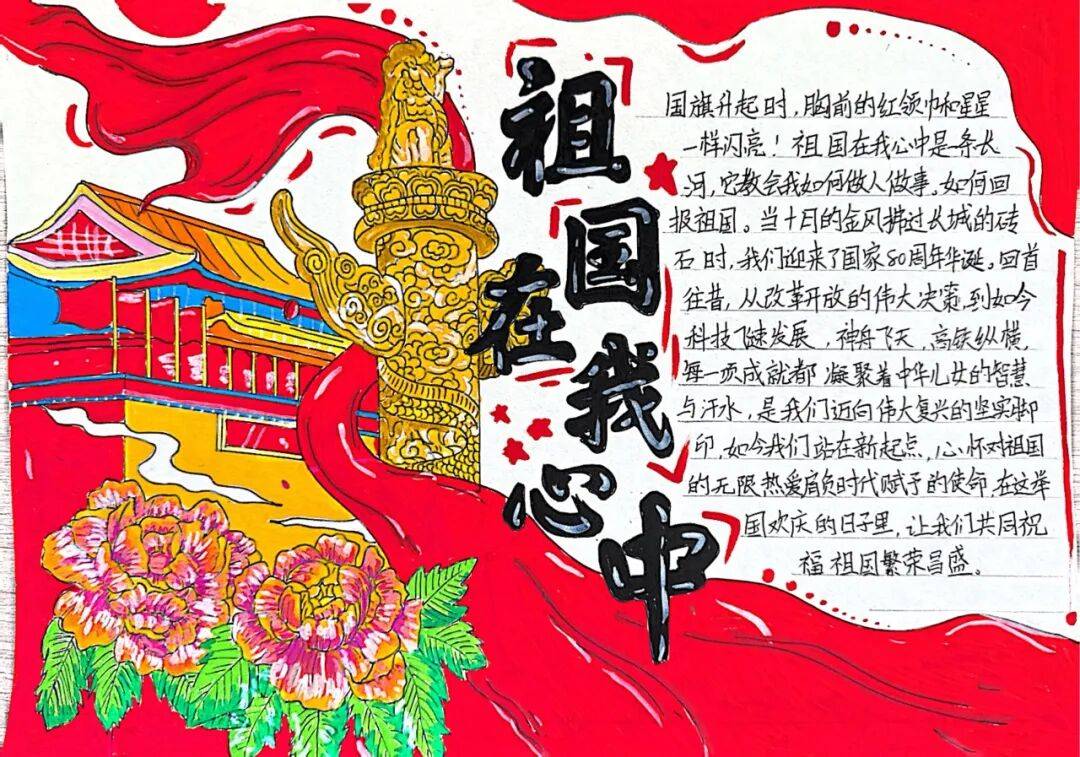 祖国在我心中
国旗升起时，胸前的红领巾和星星
一样闪亮！祖国在我心中是一条长
河，它教会我如何做人做事。如何回
报祖国。当十月的金风拂过长城的砖
石时，我们迎来了国家80周年华诞。回首
往昔，从改革开放的伟大决策，到如今
科技飞速发展，神舟飞天，高铁纵横，
每一项成就都凝聚着中华儿女的智慧
与汗水，是我们迈向伟大复兴的坚实脚
印，如今我们站在新起点，心怀对祖国
的无限热爱肩负时代赋予的使命，在这举
国欢庆的日子里，让我们共同祝
福祖国繁荣昌盛。